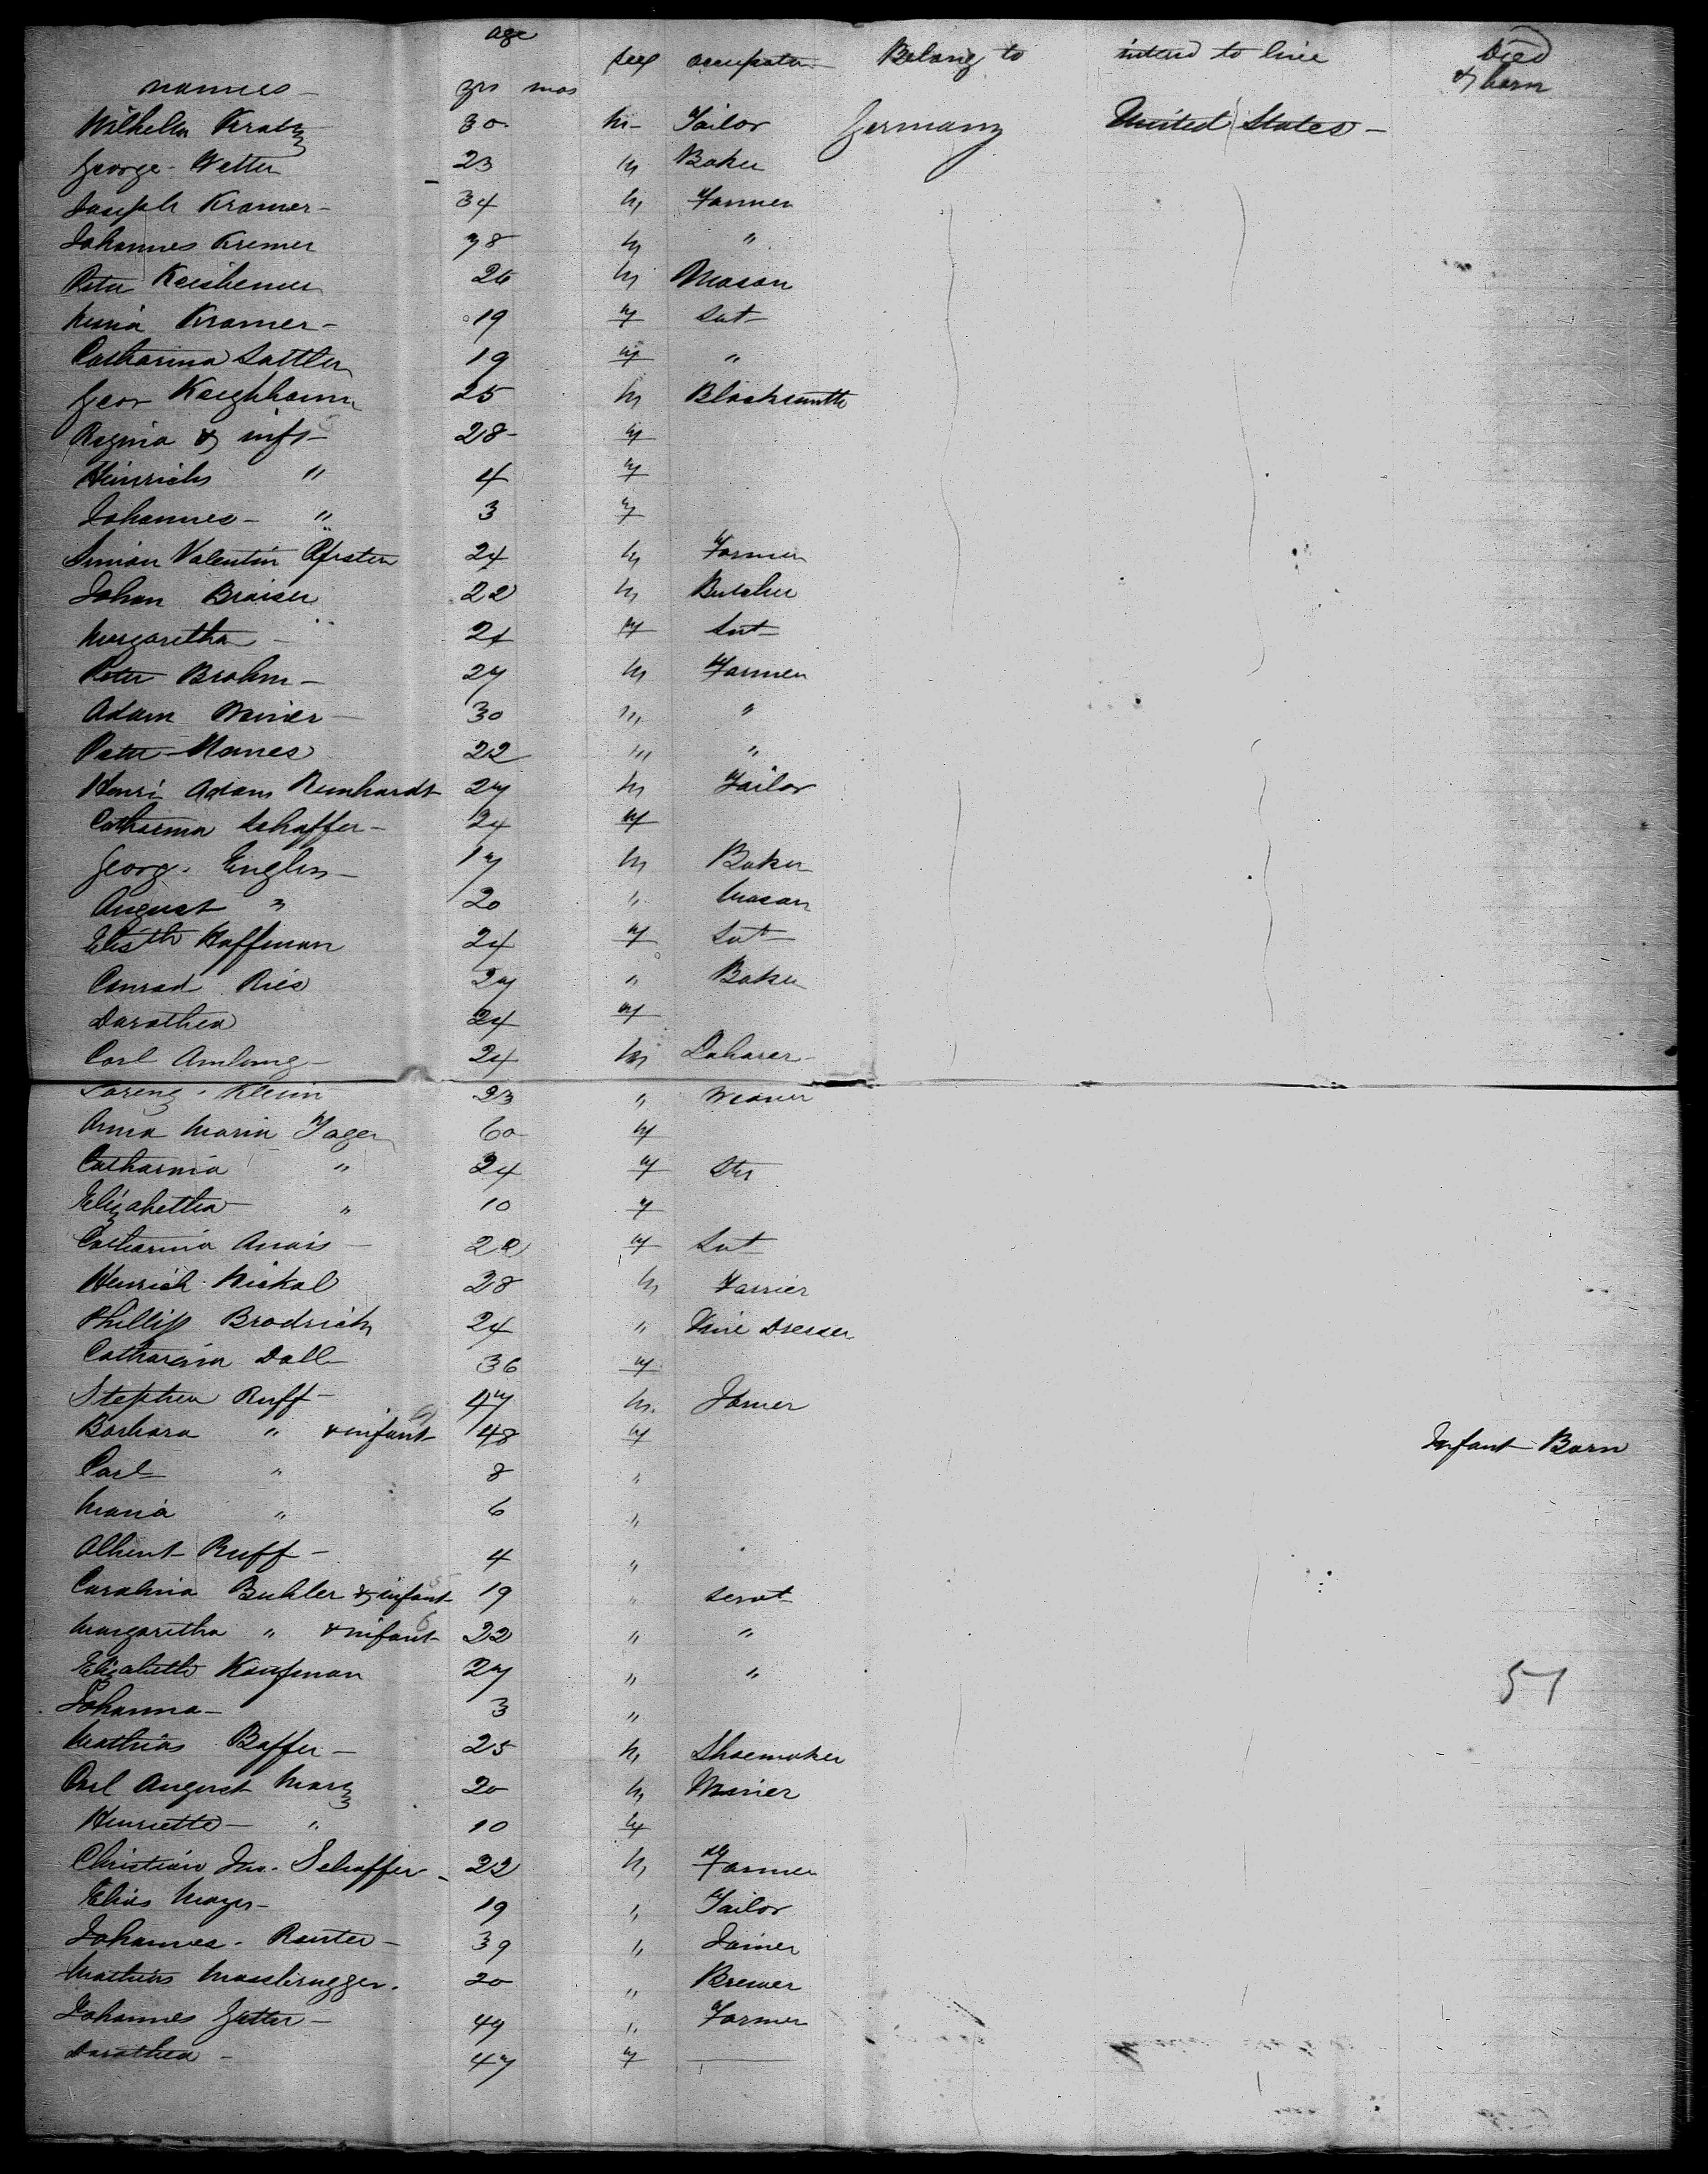 age
names yrs mos sex occupation Belong to intend to live Died & born
Wilhelm Kratz 30 m Tailor Germany United States
George Vetter 23 m Baker
Joseph Kramer 34 m Farmer
Johannes Kremer 38 m "
Peter 26 m Mason
Maria Kramer 19 f Svt
Catharina Sattler 19 f "
Geor 25 m Blacksmith
Regina & inft 28 f
Heinrich " 4 f
Johannes " 3 f
Simion Valentin 24 m Farmer
Johan Braiser 22 m Butcher
Margaretha 24 f Svt
Peter Brohm 27 m Farmer
Adam Weiner 30 m "
Peter Manes 22 m "
Henri Adam Reinhardt 27 m Tailor
Catharina Schaffer 24 f
Georg Engles 17 m Baker
August " 20 " Mason
Elisth Hoffman 24 f Svt
Conrad Ries 27 " Baker
Dorothea 24 f
Carl Amlung 24 m Laborer
Lorenz Klein 23 " Weaver
Anna Maria Jager 60 f
Catharina " 24 f
Elizabetha " 10 f
Catharina Anais 22 f Svt
Henrich Nickal 28 m Farrier
Phillip Brodrich 24 " Vine Dresser
Catharina Doll 36 f
Stephen Ruff 47 m Joiner
Barbara " & infant 48 f Infant Born
Carl " 8 "
Maria " 6 "
Albert Ruff 4 "
Carolina Buhler & infant 19 " Servt
Margaretha " & infant 22 " "
Elizabeth Kaufman 27 " "
Johanna 3 "
51
Mathias Boffer 25 m Shoemaker
Carl August Marz 20 m Miner
Henriette " 10 f
Christian Jno. Schaffer 22 m Farmer
Elias Mayer 19 " Tailor
Johannes Rauter 39 " Joiner
Mathias Mossbrugger 20 " Brewer
Johannes Getter 49 " Farmer
Dorothea 47 f